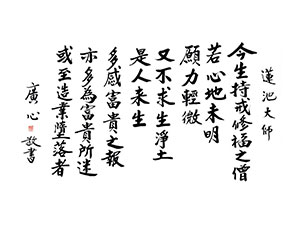 蓮池大師
今生持戒修福之僧
若心地未明
願力輕微
又不求生淨土
是人來生
多感富貴之報
亦多為富貴所迷
或至造業墮落者
廣心
敬書